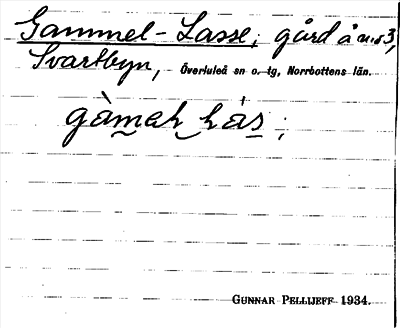 Gammel-Lasse, gård å n:o 3,
Svartbyn, Överluleå sn o. tg, Norrbottens län.
gàmeh làs ;
GUNNAR PELLIJEFF 1934.